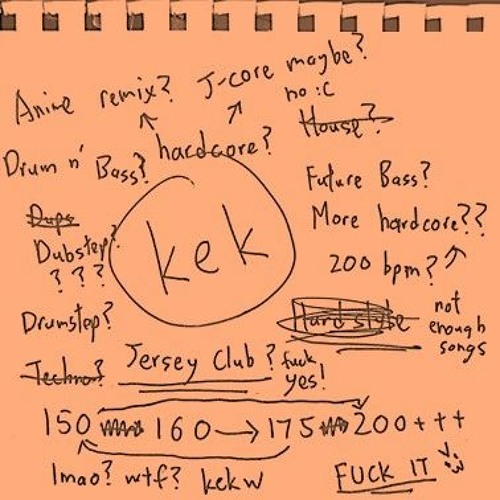 Anime remix?
J-core maybe?
no :c
House?
hardcore?
Drum n' Bass?
Future Bass?
More hardcore??
200 bpm?
kek
Dups
Dubstep?
? ? ?
Drumstep?
Hardstyle
not
enough
songs
Techno?
Jersey Club?
fuck
yes!
150 160 → 175 200+++
lmao? wtf? kekw
FUCK IT